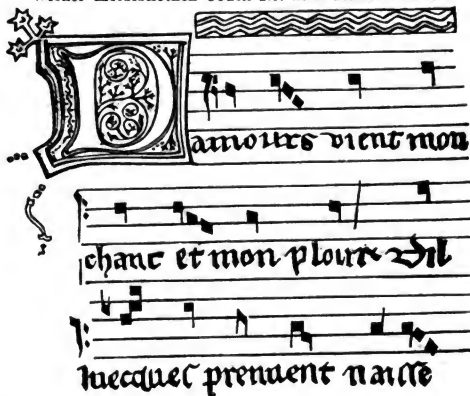 Damours vient mon
chant et mon plours Dil
luecques prennent naisse